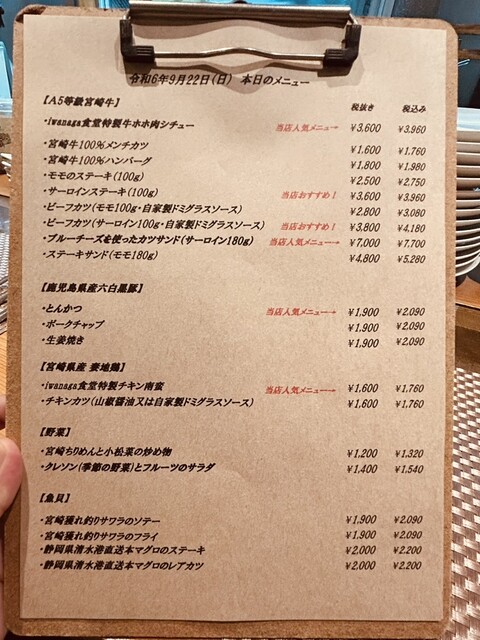 令和6年9月22日(日) 本日のメニュー
【A5等級宮崎牛】 税抜き 税込み
・iwanaga食堂特製牛ホホ肉シチュー 当店人気メニュー→ ¥3,600 ¥3,960
・宮崎牛100%メンチカツ ¥1,600 ¥1,760
・宮崎牛100%ハンバーグ ¥1,800 ¥1,980
・モモのステーキ(100g) ¥2,500 ¥2,750
・サーロインステーキ(100g) 当店おすすめ! ¥3,600 ¥3,960
・ビーフカツ(モモ100g・自家製ドミグラスソース) ¥2,800 ¥3,080
・ビーフカツ(サーロイン100g・自家製ドミグラスソース) 当店おすすめ! ¥3,800 ¥4,180
・ブルーチーズを使ったカツサンド(サーロイン180g) 当店人気メニュー→ ¥7,000 ¥7,700
・ステーキサンド(モモ180g) ¥4,800 ¥5,280
【鹿児島県産六白黒豚】
・とんかつ 当店人気メニュー→ ¥1,900 ¥2,090
・ポークチャップ ¥1,900 ¥2,090
・生姜焼き ¥1,900 ¥2,090
【宮崎県産 妻地鶏】
・iwanaga食堂特製チキン南蛮 当店人気メニュー→ ¥1,600 ¥1,760
・チキンカツ(山椒醤油又は自家製ドミグラスソース) ¥1,600 ¥1,760
【野菜】
・宮崎ちりめんと小松菜の炒め物 ¥1,200 ¥1,320
・クレソン(季節の野菜)とフルーツのサラダ ¥1,400 ¥1,540
【魚貝】
・宮崎獲れ釣りサワラのソテー ¥1,900 ¥2,090
・宮崎獲れ釣りサワラのフライ ¥1,900 ¥2,090
・静岡県清水港直送本マグロのステーキ ¥2,000 ¥2,200
・静岡県清水港直送本マグロのレアカツ ¥2,000 ¥2,200